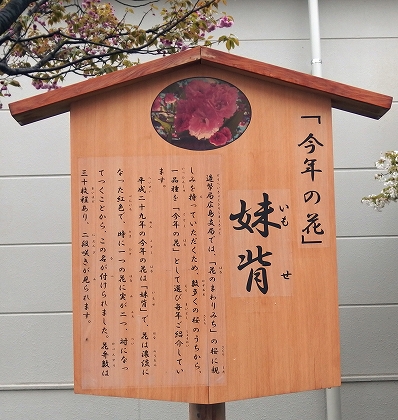 「今年の花」
妹背
いもせ
造幣局広島支局では、「花のまわりみち」の桜に親
しみを持っていただくため、数多くの桜のうちから、
一品種を「今年の花」として選び毎年ご紹介してい
ます。
平成二十九年の今年の花は「妹背」で、花は濃淡に
なった紅色で、時に一つの花に実が二つ、対になっ
てつくことから、この名が付けられました。花弁数は
三十枚程あり、二段咲きが見られます。